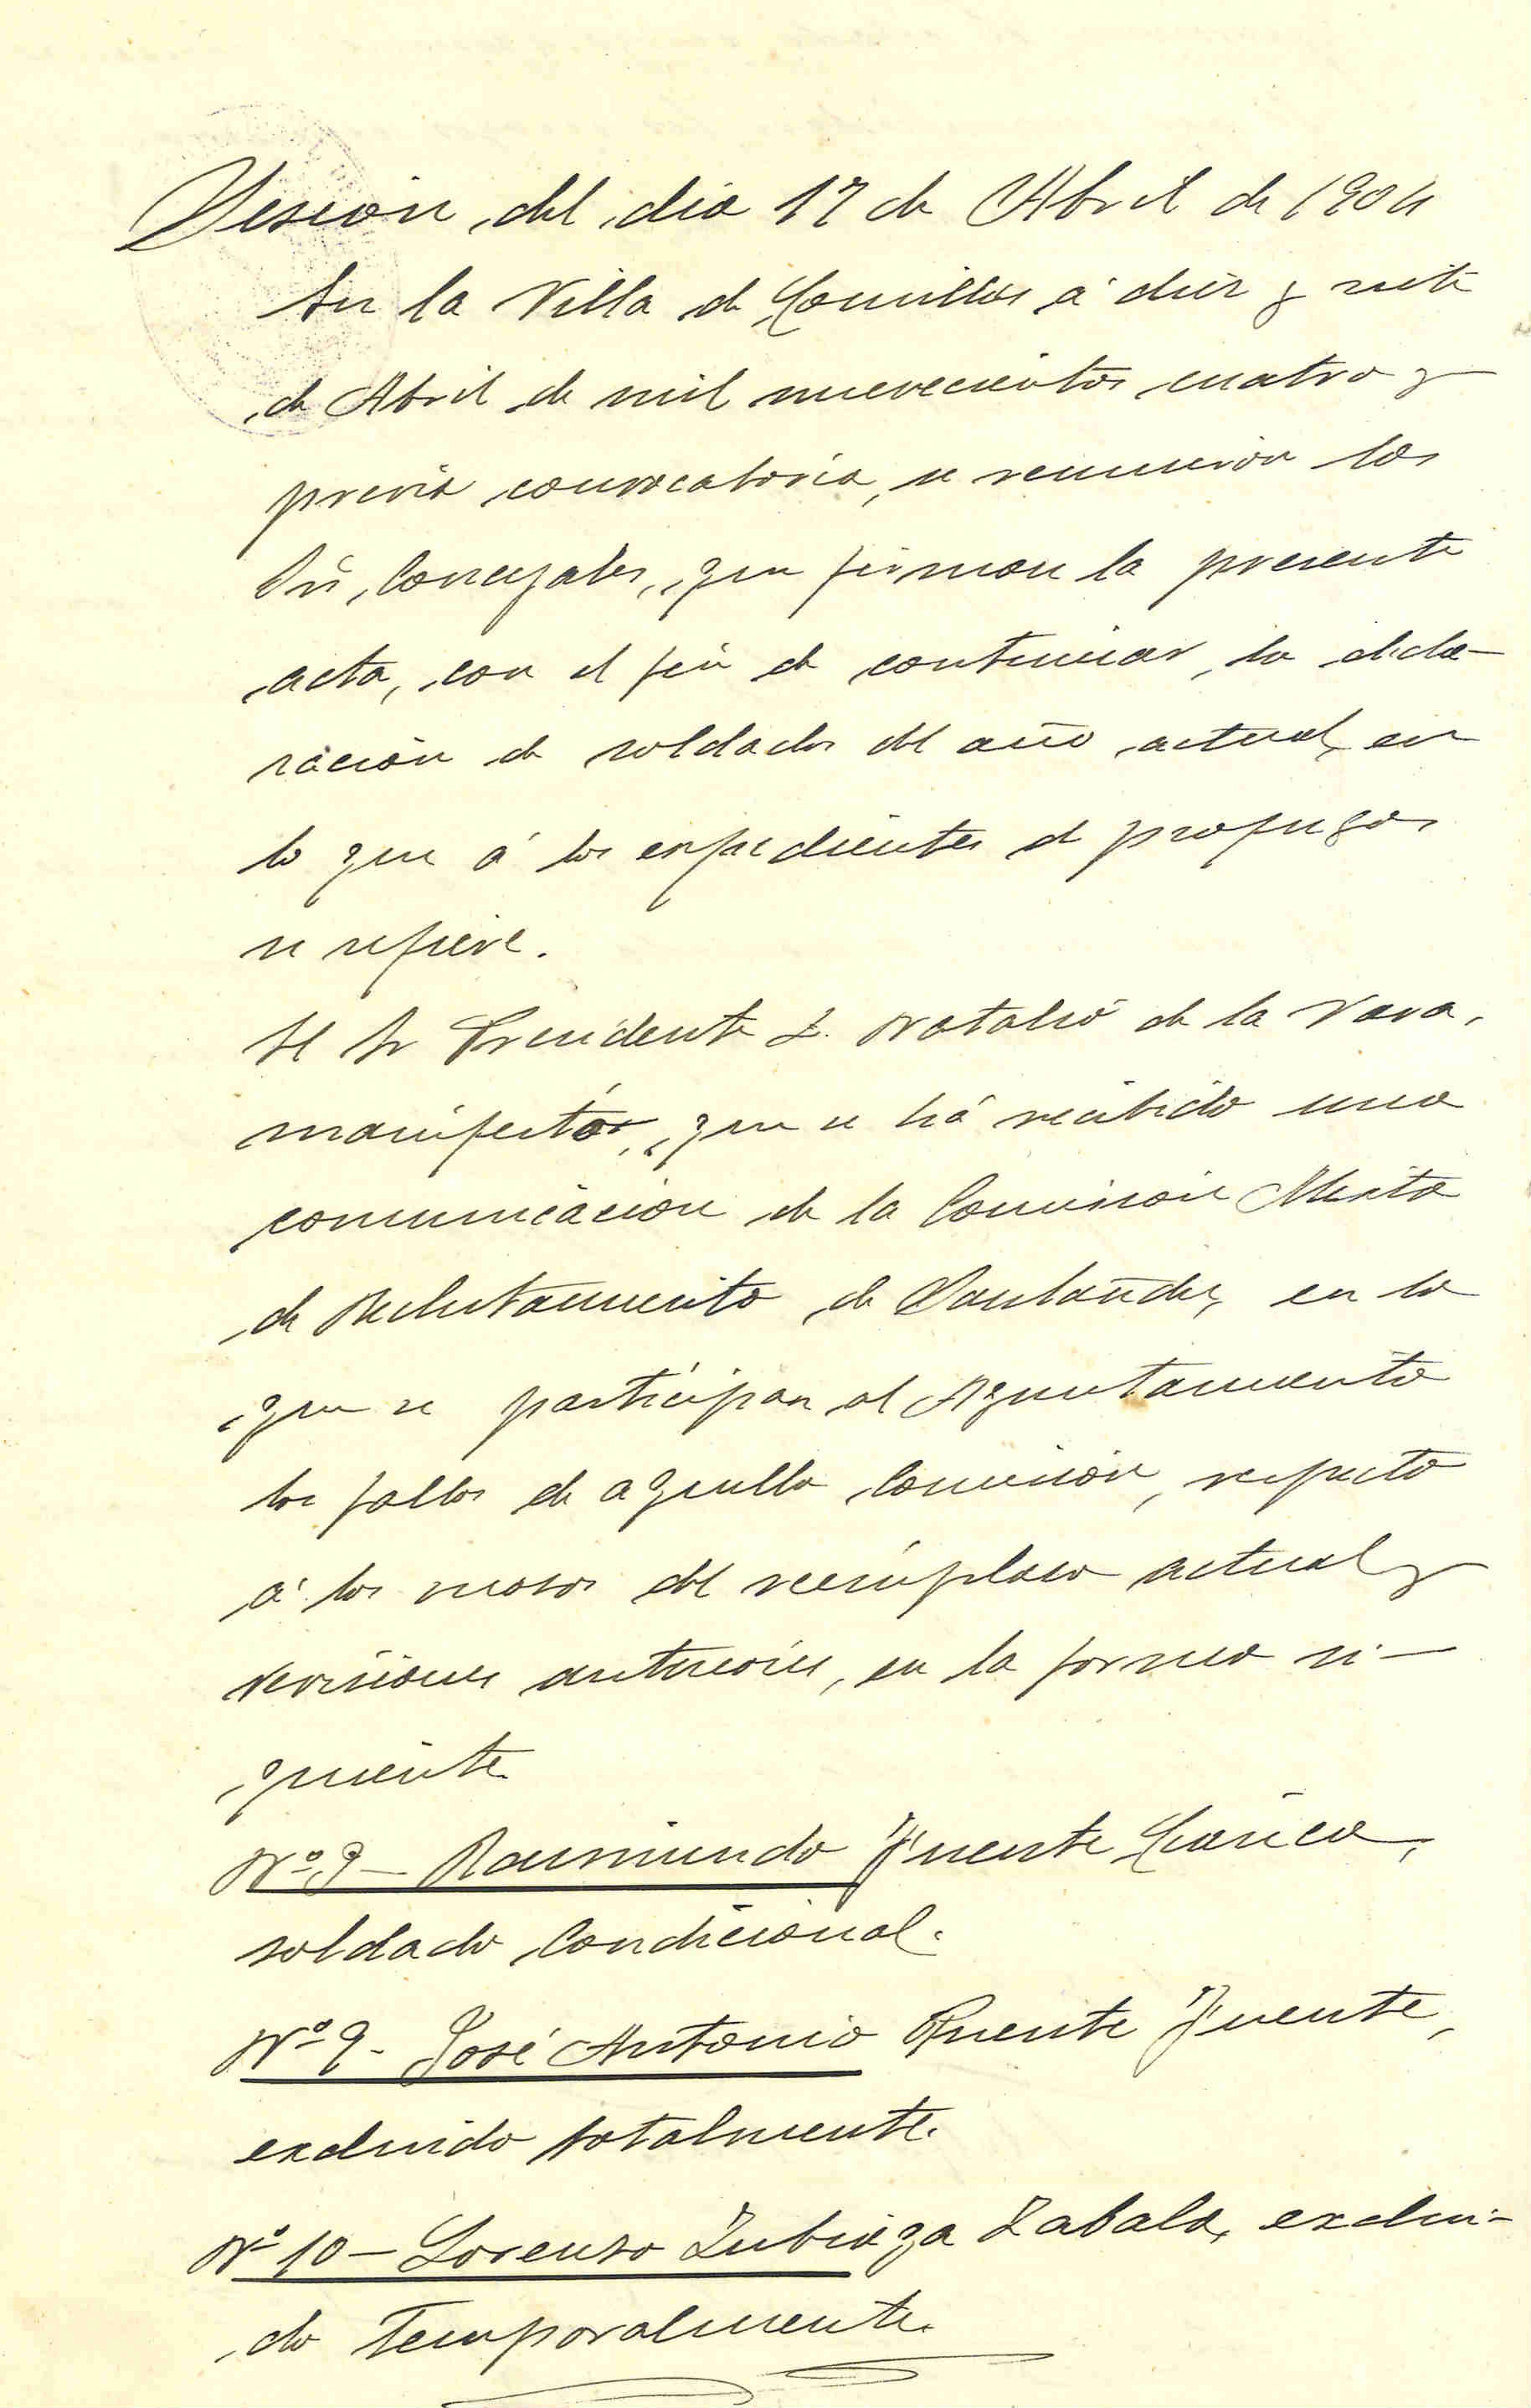 Sesión del dia 17 de Abril de 1904
En la Villa de Comillas á diez y siete
de Abril de mil nuevecientos cuatro y
previa convocatoria, se reunieron los
Srs. Concejales, que firman la presente
acta, con el fin de continuar, la decla-
ración de soldados del año actual, en
lo que á los expedientes de profugos
se refiere.
El Sr Presidente D. Natalio de la Vara,
manifestó, que se há recibido una
comunicacion de la Comisión Mixta
de Reclutamiento de Santander, en la
que se participan al Ayuntamiento
los fallos de aquella Comisión, respecto
á los mozos del reemplazo actual y
revisiones anteriores, en la forma si-
guiente.
Nº 9 - Raimundo Fuente
soldado Condicional.
Nº 9 - José Antonio Puente Fuente,
excluido totalmente.
Nº 10 - Lorenzo Zubiaga Zabala, exclui-
do Temporalmente.